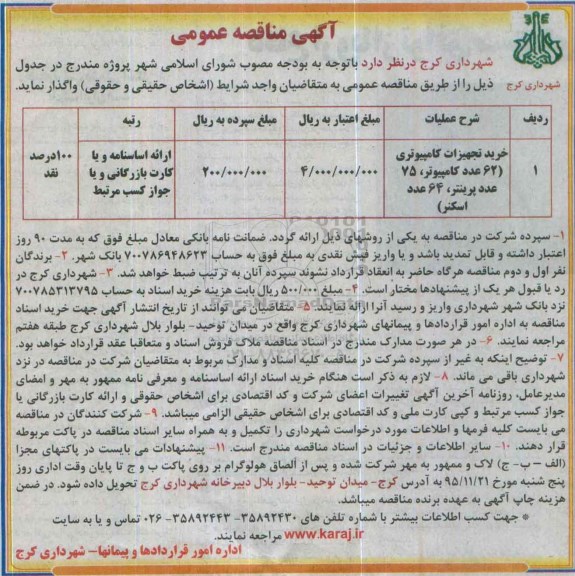 آگهی مناقصه عمومی
شهرداری کرج
شهرداری کرج درنظر دارد باتوجه به بودجه مصوب شورای اسلامی شهر پروژه مندرج در جدول
ذیل را از طریق مناقصه عمومی به متقاضیان واجد شرایط (اشخاص حقیقی و حقوقی) واگذار نماید.
ردیف شرح عملیات مبلغ اعتبار به ریال مبلغ سپرده به ریال رتبه
۱ خرید تجهیزات کامپیوتری (۶۲ عدد کامپیوتر، ۷۵ عدد پرینتر، ۶۴ عدد اسکنر) ۴/۰۰۰/۰۰۰/۰۰۰ ۲۰۰/۰۰۰/۰۰۰ ارائه اساسنامه و یا کارت بازرگانی و یا جواز کسب مرتبط ۱۰۰درصد نقد
۱- سپرده شرکت در مناقصه به یکی از روشهای ذیل ارائه گردد. ضمانت نامه بانکی معادل مبلغ فوق که به مدت ۹۰ روز
اعتبار داشته و قابل تمدید باشد و یا واریز فیش نقدی به مبلغ فوق به حساب ۷۰۰۷۸۶۹۴۸۶۲۳ بانک شهر. ۲- برندگان
نفر اول و دوم مناقصه هرگاه حاضر به انعقاد قرارداد نشوند سپرده آنان به ترتیب ضبط خواهد شد. ۳- شهرداری کرج در
رد یا قبول هر یک از پیشنهادها مختار است. ۴- مبلغ ۵۰۰/۰۰۰ ریال بابت هزینه خرید اسناد به حساب ۷۰۰۷۸۵۳۱۳۷۹۵
نزد بانک شهر شهرداری واریز و رسید آنرا ارائه نمایند. ۵- متقاضیان می توانند از تاریخ انتشار آگهی جهت خرید اسناد
مناقصه به اداره امور قراردادها و پیمانهای شهرداری کرج واقع در میدان توحید- بلوار بلال شهرداری کرج طبقه هفتم
مراجعه نمایند. ۶- در هر صورت مدارک مندرج در اسناد مناقصه ملاک فروش اسناد و متعاقبا عقد قرارداد خواهد بود.
۷- توضیح اینکه به غیر از سپرده شرکت در مناقصه کلیه اسناد و مدارک مربوط به متقاضیان شرکت در مناقصه در نزد
شهرداری باقی می ماند. ۸- لازم به ذکر است هنگام خرید اسناد ارائه اساسنامه و معرفی نامه ممهور به مهر و امضای
مدیرعامل، روزنامه آخرین آگهی تغییرات اعضای شرکت و کد اقتصادی برای اشخاص حقوقی و ارائه کارت بازرگانی یا
جواز کسب مرتبط و کپی کارت ملی و کد اقتصادی برای اشخاص حقیقی الزامی میباشد. ۹- شرکت کنندگان در مناقصه
می بایست کلیه فرمها و اطلاعات مورد درخواست شهرداری را تکمیل و به همراه سایر اسناد مناقصه در پاکت مربوطه
قرار دهند. ۱۰- سایر اطلاعات و جزئیات در اسناد مناقصه مندرج است. ۱۱- پیشنهادات می بایست در پاکتهای مجزا
(الف – ب- ج) لاک و ممهور به مهر شرکت شده و پس از الصاق هولوگرام بر روی پاکت ب و ج تا پایان وقت اداری روز
پنج شنبه مورخ ۹۵/۱۱/۲۱ به آدرس کرج- میدان توحید- بلوار بلال دبیرخانه شهرداری کرج تحویل داده شود. در ضمن
هزینه چاپ آگهی به عهده برنده مناقصه میباشد.
* جهت کسب اطلاعات بیشتر با شماره تلفن های ۳۵۸۹۲۴۳۰- ۳۵۸۹۲۴۴۳- ۰۲۶ تماس و یا به سایت
www.karaj.ir مراجعه نمایند.
اداره امور قراردادها و پیمانها- شهرداری کرج